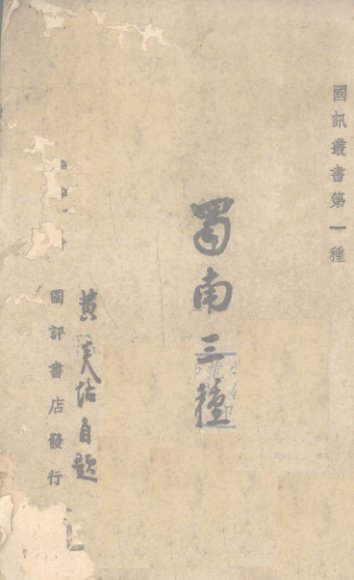 國訊叢書第一種
蜀南三種
黃炎培自題
國訊書店發行